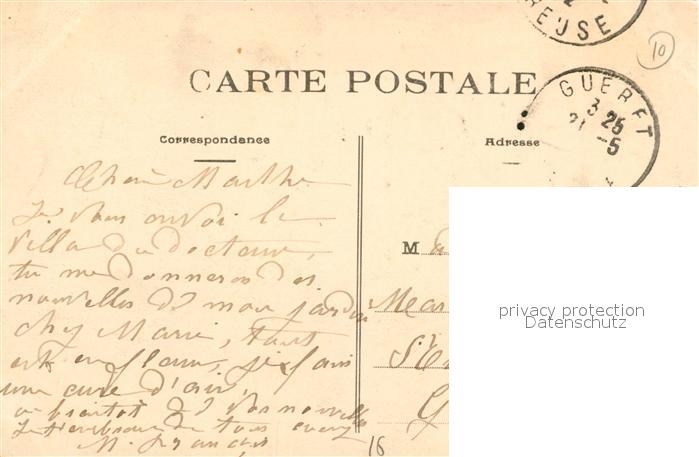 REUSE
10
CARTE POSTALE
GUERET
3 25
21 -5
Correspondance
Adresse
Chère Marthe
Je vous envoi la
villa du docteur,
tu me donneras des
nouvelles de mon jardin
chez Marie, tout
est en fleur, je fais
une cure d'air,
a bientot de vos nouvelles
Je t'embrasse de tous
M.
M
S't
G
16
privacy protection
Datenschutz